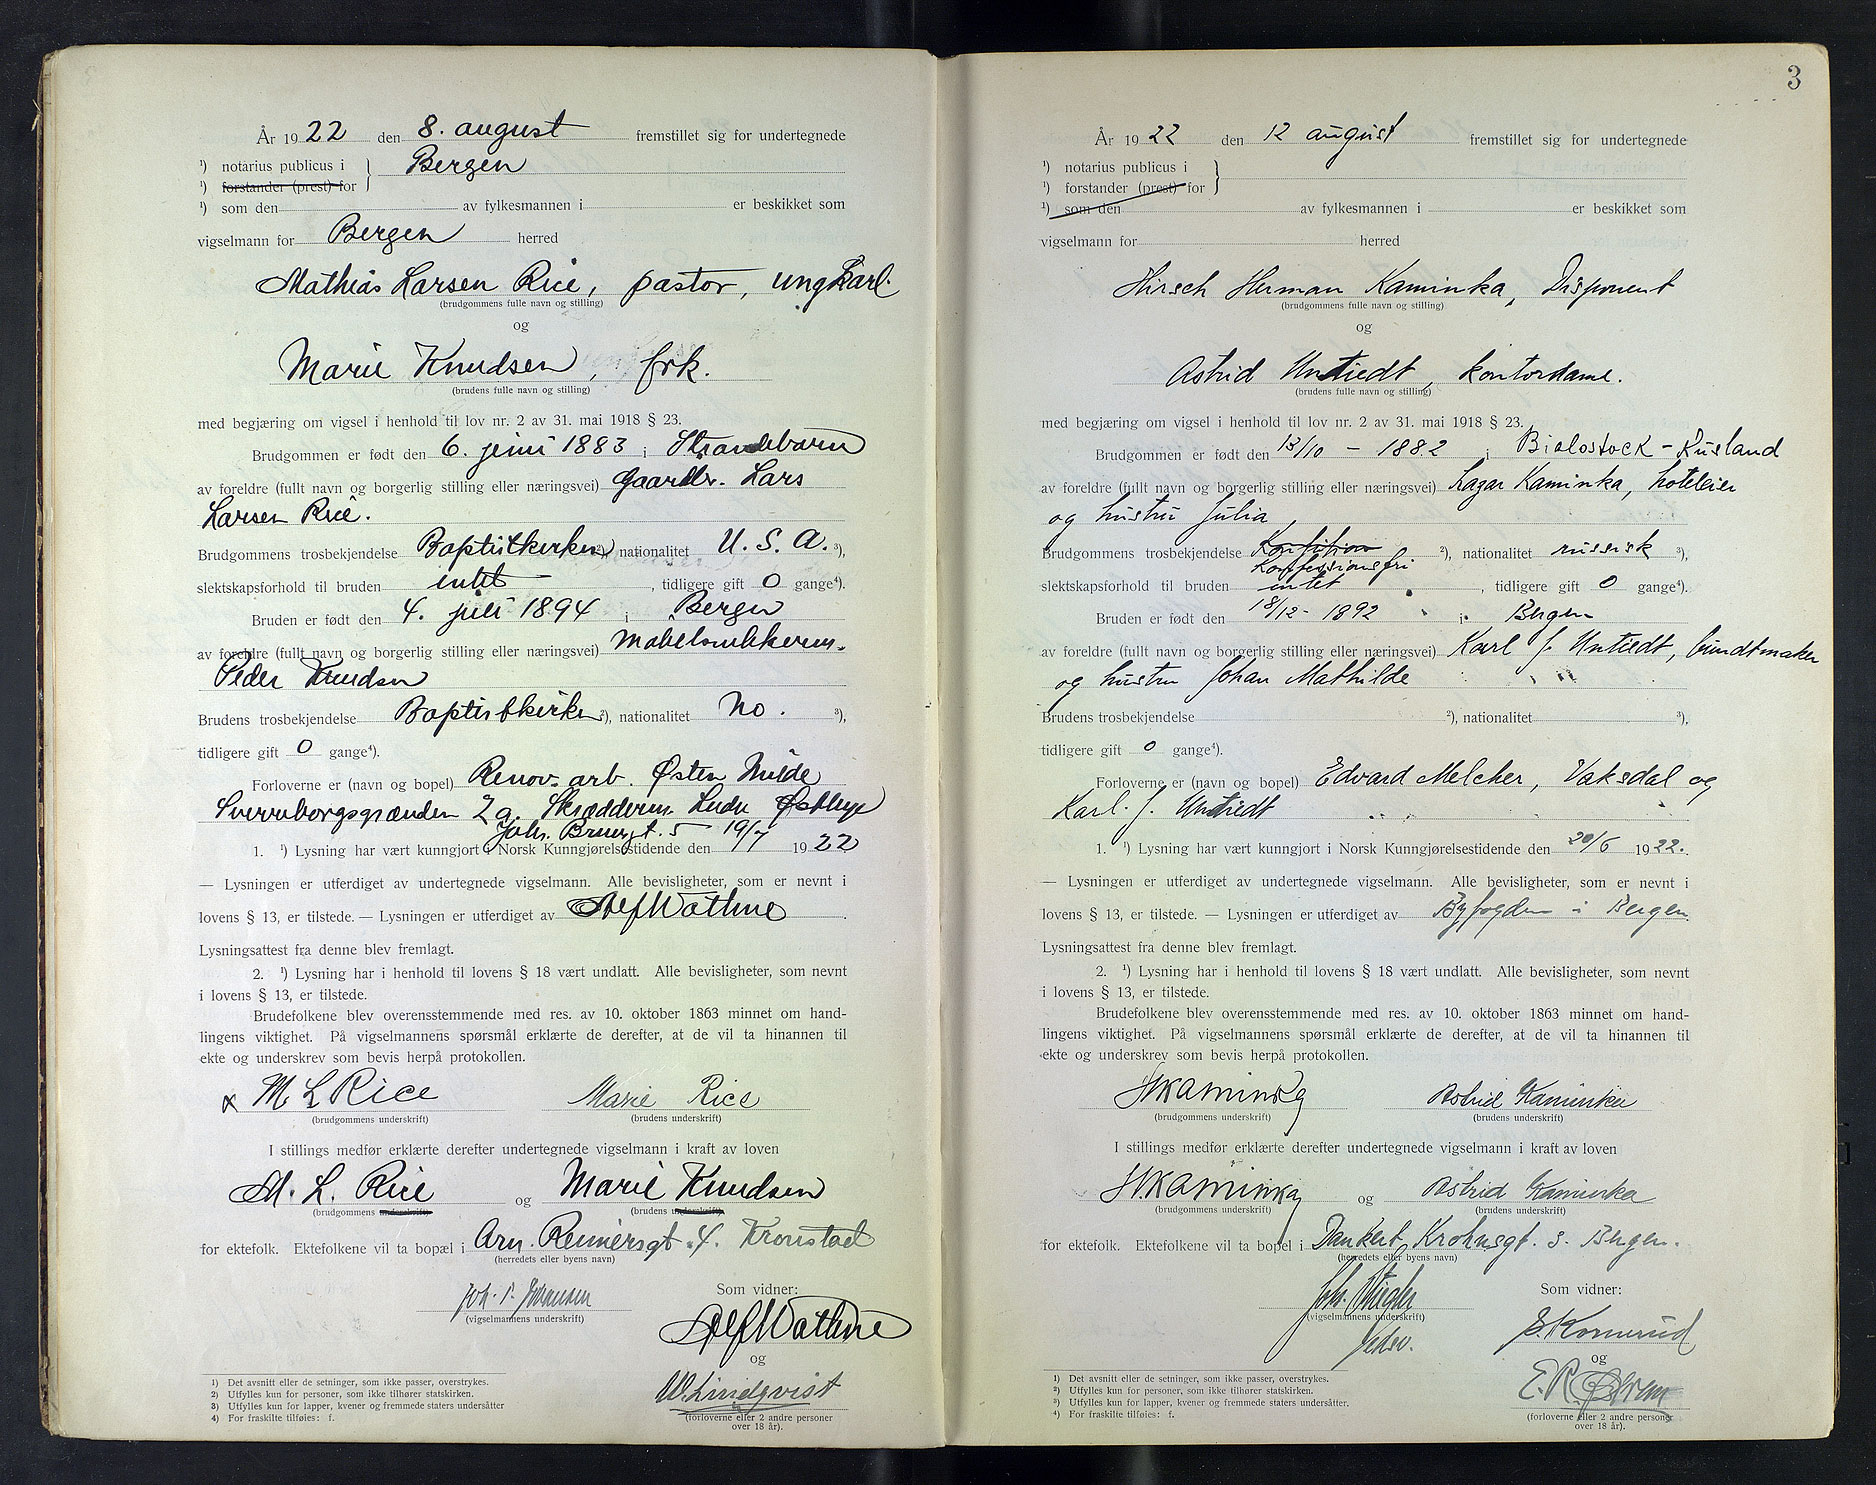 År 1922 den 8. august fremstillet sig for undertegnede
¹) notarius publicus i } Bergen
¹) forstander (prest) for
¹) som den av fylkesmannen i er beskikket som
vigselmann for Bergen herred
Mathias Larsen Rice, pastor, ungkarl.
(brudgommens fulle navn og stilling)
og
Marie Knudsen, frk.
(brudens fulle navn og stilling)
med begjæring om vigsel i henhold til lov nr. 2 av 31. mai 1918 § 23.
Brudgommen er født den 6. juni 1883 i Strandebarm
av foreldre (fullt navn og borgerlig stilling eller næringsvei) Gaardbr. Lars
Larsen Rice.
Brudgommens trosbekjendelse Baptistkirken ²), nationalitet U. S. A. ³),
slektskapsforhold til bruden intet, tidligere gift 0 gange⁴).
Bruden er født den 4. juli 1894 i Bergen
av foreldre (fullt navn og borgerlig stilling eller næringsvei) Møbelsnekkerm.
Peder Knudsen
Brudens trosbekjendelse Baptistkirken ²), nationalitet No. ³),
tidligere gift 0 gange⁴).
Forloverne er (navn og bopel) Renov. arb. Østen Milde
Sverreborgsgrænden 2a. Skrædderm. Ludv.
Joh. Bruns gt. 5
1. ¹) Lysning har vært kunngjort i Norsk Kunngjørelsestidende den 19/7 1922
— Lysningen er utferdiget av undertegnede vigselmann. Alle bevisligheter, som er nevnt i
lovens § 13, er tilstede. — Lysningen er utferdiget av Alf Wathne.
Lysningsattest fra denne blev fremlagt.
2. ¹) Lysning har i henhold til lovens § 18 vært undlatt. Alle bevisligheter, som nevnt
i lovens § 13, er tilstede.
Brudefolkene blev overensstemmende med res. av 10. oktober 1863 minnet om hand-
lingens viktighet. På vigselmannens spørsmål erklærte de derefter, at de vil ta hinannen til
ekte og underskrev som bevis herpå protokollen.
x M L Rice Marie Rice
(brudgommens underskrift) (brudens underskrift)
I stillings medfør erklærte derefter undertegnede vigselmann i kraft av loven
M. L. Rice og Marie Knudsen
(brudgommens underskrift) (brudens underskrift)
for ektefolk. Ektefolkene vil ta bopæl i Arn. Reimersgt. 4. Kronstad
(herredets eller byens navn)
Joh. P. Johansen Som vidner:
(vigselmannens underskrift)
Alf Wathne
og
W. Lindqvist
(forloverne eller 2 andre personer
over 18 år).
1) Det avsnitt eller de setninger, som ikke passer, overstrykes.
2) Utfylles kun for personer, som ikke tilhører statskirken.
3) Utfylles kun for lapper, kvener og fremmede staters undersåtter
4) For fraskilte tilføies: f.
3
År 1922 den 12 august fremstillet sig for undertegnede
¹) notarius publicus i }
¹) forstander (prest) for
¹) som den av fylkesmannen i er beskikket som
vigselmann for herred
Hirsch Herman Kaminka, Disponent
(brudgommens fulle navn og stilling)
og
Astrid Untiedt, kontordame.
(brudens fulle navn og stilling)
med begjæring om vigsel i henhold til lov nr. 2 av 31. mai 1918 § 23.
Brudgommen er født den 13/10 - 1882 i Bialostock - Rusland
av foreldre (fullt navn og borgerlig stilling eller næringsvei) Lazar Kaminka, hoteleier
og hustru Julia
Brudgommens trosbekjendelse Konfessionsfri ²), nationalitet russisk ³),
slektskapsforhold til bruden intet, tidligere gift 0 gange⁴).
Bruden er født den 18/12 - 1892 i Bergen
av foreldre (fullt navn og borgerlig stilling eller næringsvei) Karl J. Untiedt, bundtmaker
og hustru Johan Mathilde
Brudens trosbekjendelse ²), nationalitet ³),
tidligere gift 0 gange⁴).
Forloverne er (navn og bopel) Edvard Melcher, Vaksdal og
Karl. J. Untiedt
1. ¹) Lysning har vært kunngjort i Norsk Kunngjørelsestidende den 20/6 1922.
— Lysningen er utferdiget av undertegnede vigselmann. Alle bevisligheter, som er nevnt i
lovens § 13, er tilstede. — Lysningen er utferdiget av Byfogden i Bergen.
Lysningsattest fra denne blev fremlagt.
2. ¹) Lysning har i henhold til lovens § 18 vært undlatt. Alle bevisligheter, som nevnt
i lovens § 13, er tilstede.
Brudefolkene blev overensstemmende med res. av 10. oktober 1863 minnet om hand-
lingens viktighet. På vigselmannens spørsmål erklærte de derefter, at de vil ta hinannen til
ekte og underskrev som bevis herpå protokollen.
H Kaminka Astrid Kaminka
(brudgommens underskrift) (brudens underskrift)
I stillings medfør erklærte derefter undertegnede vigselmann i kraft av loven
H. Kaminka og Astrid Kaminka
(brudgommens underskrift) (brudens underskrift)
for ektefolk. Ektefolkene vil ta bopel i Dankert Krohnsgt. 3. Bergen.
(herredets eller byens navn)
Joh. Som vidner:
(vigselmannens underskrift)
E. Kornerud
og
E. R.
(forloverne eller 2 andre personer
over 18 år).
¹) Det avsnitt eller de setninger, som ikke passer, overstrykes.
²) Utfylles kun for personer, som ikke tilhører statskirken.
³) Utfylles kun for lapper, kvener og fremmede staters undersåtter.
⁴) For fraskilte tilføies: f.